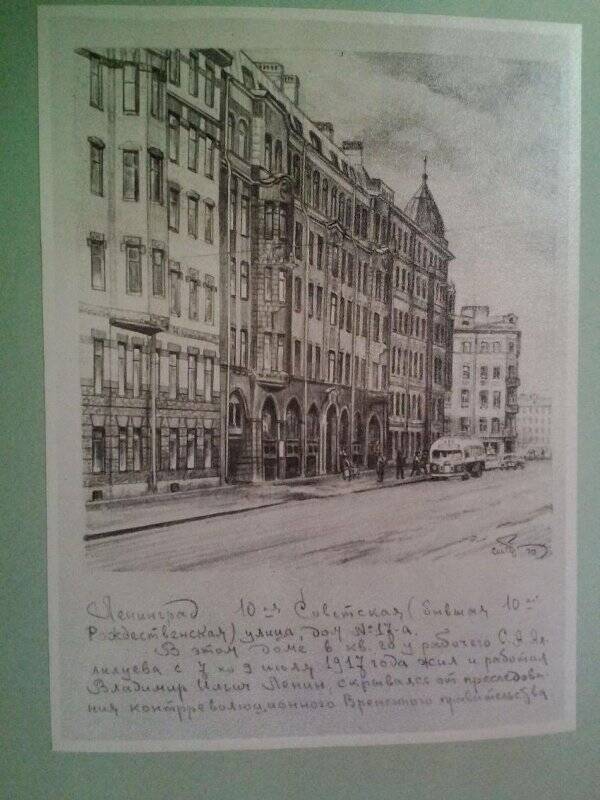 Ленинград 10-я Советская (бывшая 10-я
Рождественская) улица, дом № 17-а.
В этом доме в кв. 20 у рабочего С.Я. Ал-
лилуева с 7 по 9 июля 1917 года жил и работал
Владимир Ильич Ленин, скрываясь от преследова-
ния контрреволюционного Временного правительства